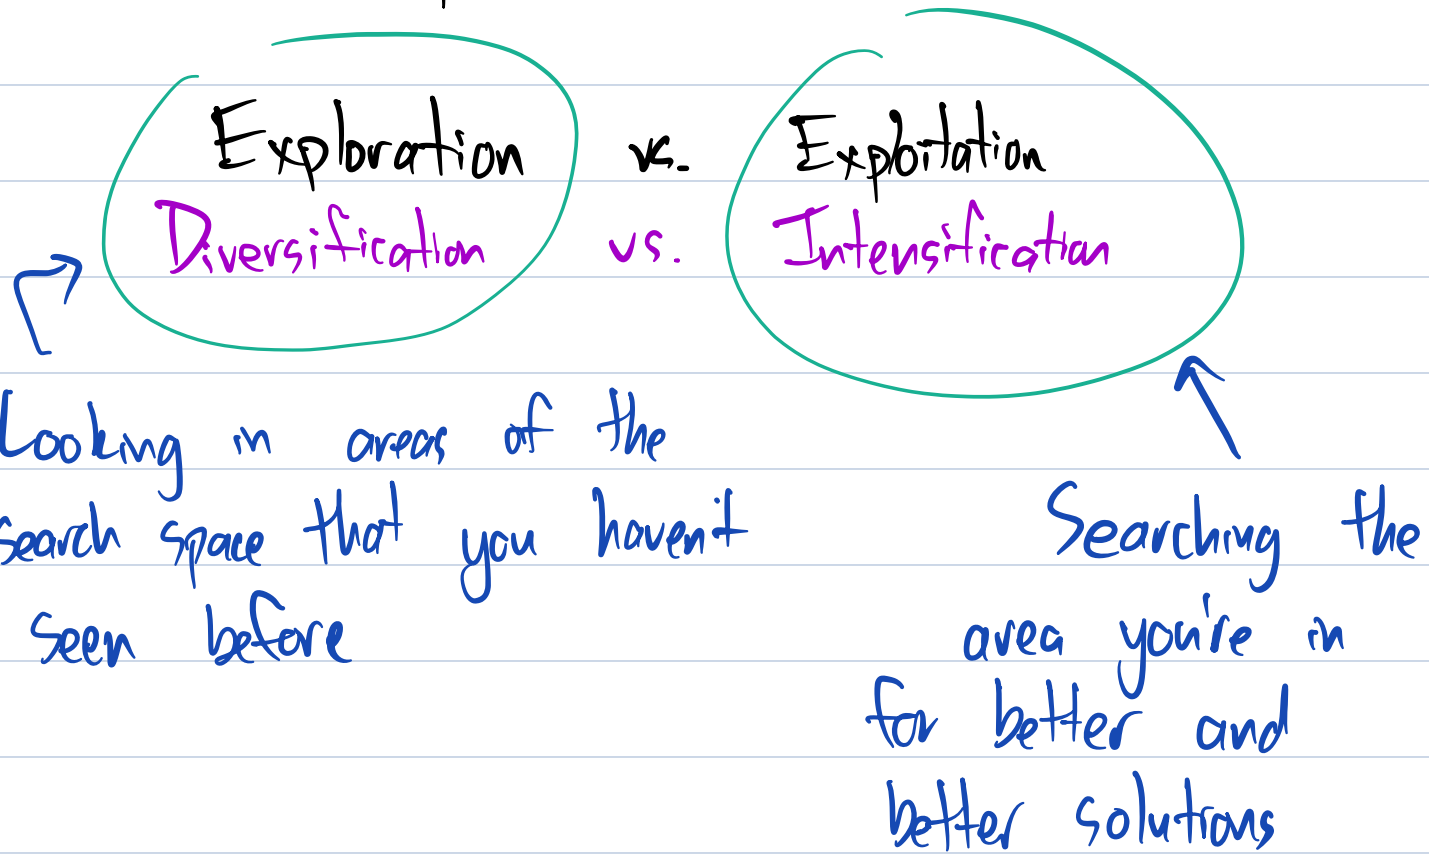 Exploration vs. Exploitation
Diversification vs. Intensification
Looking in areas of the
search space that you haven't
seen before
Searching the
area you're in
for better and
better solutions